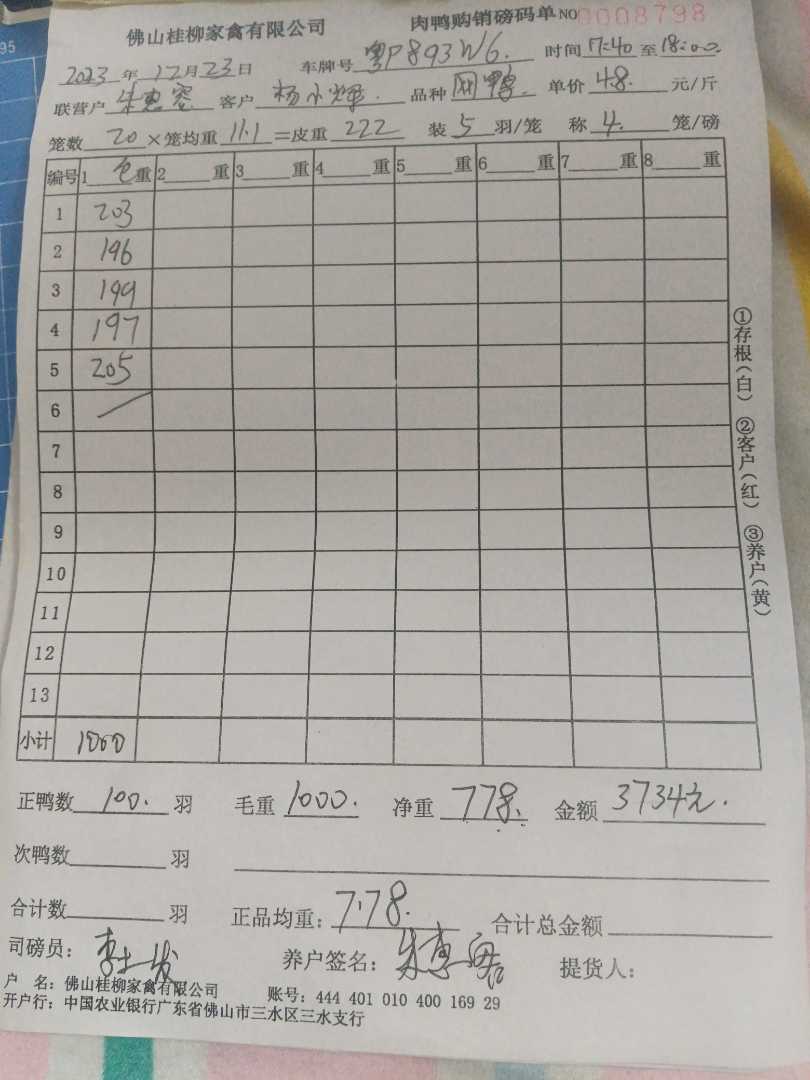 95
佛山桂柳家禽有限公司 肉鸭购销磅码单 NO 0008798
2023年12月23日 车牌号 粤P893W6. 时间 17:40 至 18:00
联营户 朱惠容 客户 杨小辉. 品种 网鸭. 单价 4.8. 元/斤
笼数 20 ×笼均重 11.1 =皮重 222 装 5 羽/笼 称 4. 笼/磅
编号 1 毛重 2 重 3 重 4 重 5 重 6 重 7 重 8 重
1 203
2 196
3 199
4 197
5 205
6 /
7
8
9
10
11
12
13
小计 1000
①存根(白) ②客户(红) ③养户(黄)
正鸭数 100. 羽 毛重 1000. 净重 778. 金额 3734元.
次鸭数 羽
合计数 羽 正品均重: 7.78. 合计总金额
司磅员: 养户签名: 朱惠容 提货人:
户 名: 佛山桂柳家禽有限公司 账号: 444 401 010 400 169 29
开户行: 中国农业银行广东省佛山市三水区三水支行